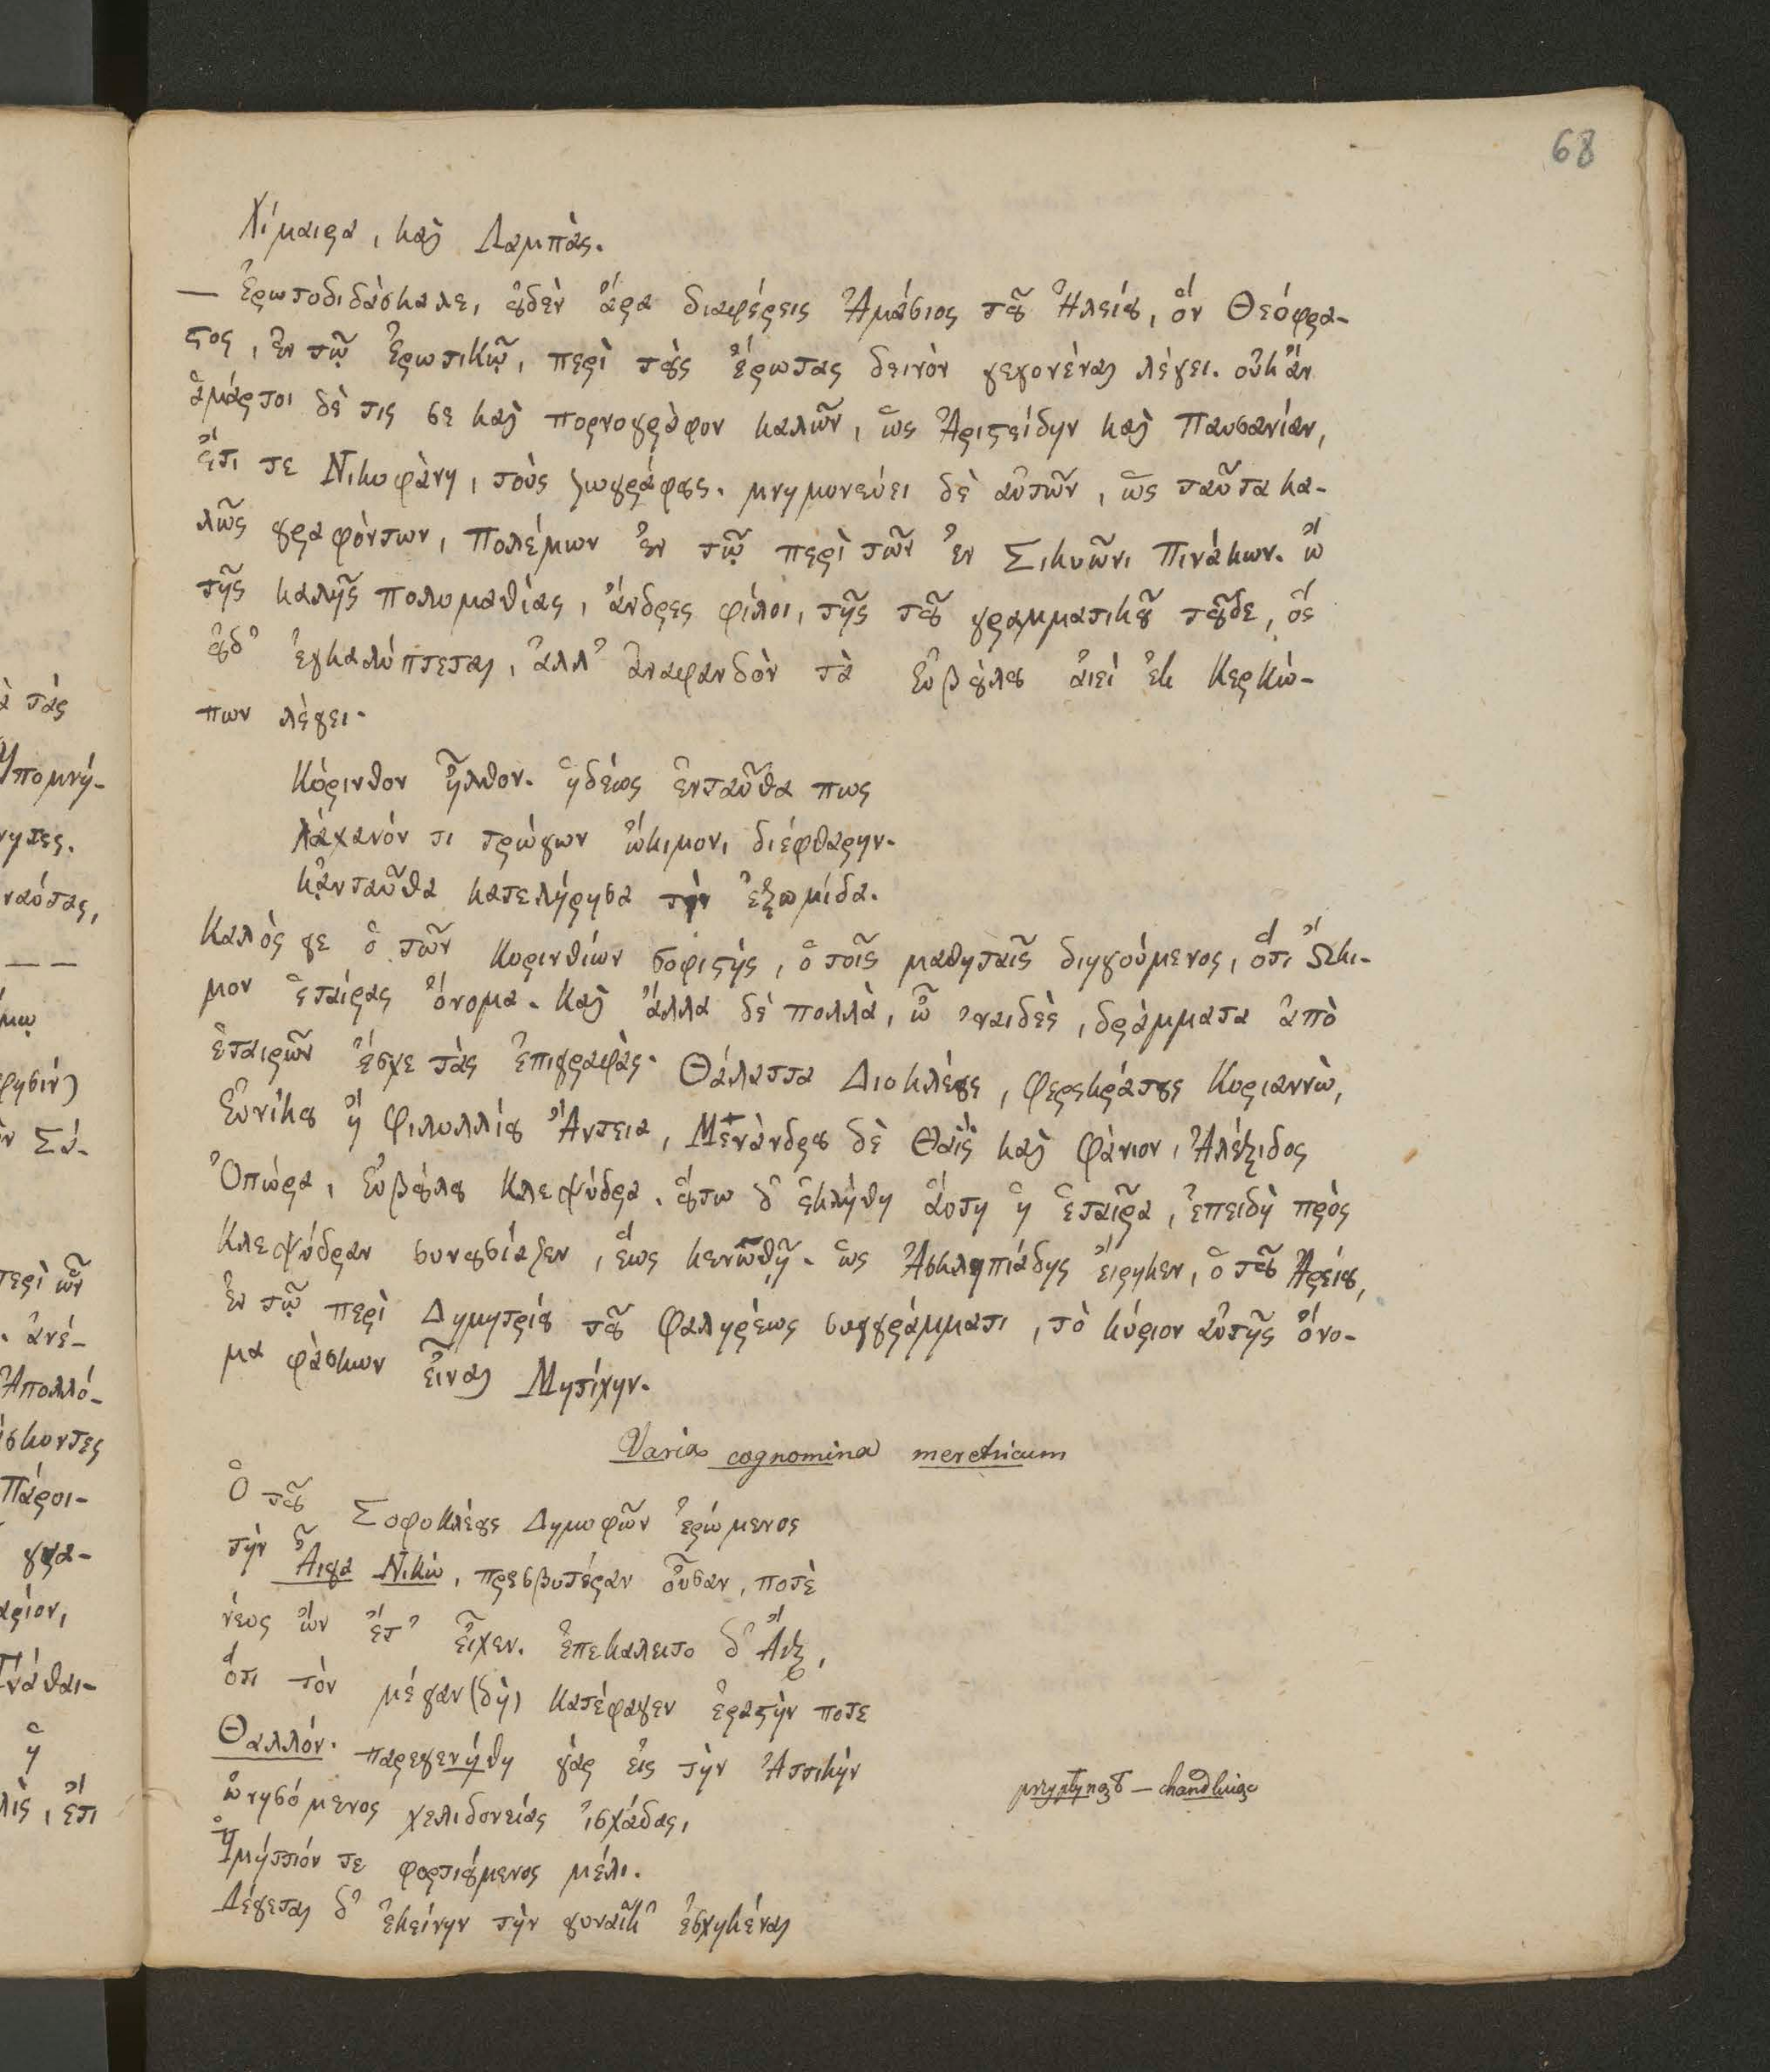 68
Χίμαιρα, καὶ Λαμπὰς.
— Ἐρωτοδιδάσκαλε, ȣ̓δὲν ἄρα διαφέρεις Ἀμάσιος τȣ͂ Ἠλείȣ, ὅν Θεόφρα-
ϛος, ἐν τῷ Ἐρωτικῷ, περὶ τȣ̀ς ἔρωτας δεινὸν γεγονέναι λέγει. οὐκ ἄν
ἁμάρτοι δὲ τις σε καὶ πορνογράφον καλῶν, ὡς Ἀριϛείδην καὶ Παυσανίαν,
ἔτι τε Νικοφάνη, τοὺς ζωγράφȣς. μνημονεύει δὲ αὐτῶν, ὡς ταῦτα κα-
λῶς γραφόντων, Πολέμων ἐν τῷ περὶ τῶν ἐν Σικυῶνι Πινάκων. ὤ
τῆς καλῆς πολυμαθίας, ἄνδρες φίλοι, τῆς τȣ͂ γραμματικȣ͂ τȣ͂δε, ὅς
ȣ̓δ᾽ ἐγκαλύπτεται, ἀλλ᾽ ἀναφανδὸν τὰ Εὐβȣ́λȣ ἀιεὶ ἐκ Κερκώ-
πων λέγει·
Κόρινθον ἦλθον. ἡδέως ἐνταῦθα πως
λάχανόν τι τρώγων ὤκιμον, διέφθαρην.
κᾀνταῦθα κατελήρησα τὴν ἐξωμίδα.
Καλὸς γε ὁ τῶν Κορινθίων σοφιϛής, ὁ τοῖς μαθηταῖς διηγούμενος, ὅτι Ὤκι-
μον ἑταίρας ὄνομα. Καὶ ἄλλα δὲ πολλὰ, ὦ ᾽ναιδὲς, δράμματα ἀπὸ
ἑταιρῶν ἔσχε τὰς ἐπιγραφὰς· Θάλαττα Διοκλέȣς, Φερεκράτȣς Κοριαννὼ,
Εὐνίκȣ ἤ Φιλυλλίȣ Ἄντεια, Μενάνδρȣ δὲ Θαῒς καὶ Φάνιον, Ἀλέξιδος
Ὀπώρα, Εὐβȣ́λȣ Κλεψύδρα. ȣ́τω δ᾽ ἐκλήθη ἄυτη ἡ ἑταῖρα, ἐπειδὴ πρὸς
Κλεψύδραν συνȣσίαζεν, ἕως κενωθῇ. ὡς Ἀσκληπιάδης ἔιρηκεν, ὁ τȣ͂ Ἀρείȣ,
ἐν τῷ περὶ Δημητρίȣ τȣ͂ Φαληρέως συγγράμματι, τὸ κύριον αὐτῆς ὄνο-
μα φάσκων εἶναι Μητίχην.
Varia cognomina meretricum
Ὁ τȣ͂ Σοφοκλέȣς Δημοφῶν ἐρώμενος
τὴν Ἆιγα Νικὼ, πρεσβυτέραν οὖσαν, ποτὲ
νέος ὤν ἔτ᾽ εἶχεν. ἐπεκαλειτο δ᾽ Ἄιξ,
ὅτι τὸν μέγαν (δὴ) κατέφαγεν ἐραϛὴν ποτε
Θαλλόν. παρεγενήθη γὰρ εἰς τὴν Ἀττικὴν
ὠνησόμενος χελιδονείας ἰσχάδας,
Ὑμήττιόν τε φορτιȣ́μενος μέλι.
Λέγεται δ᾽ ἐκείνην τὴν γυναῖκ᾽ ἐσχηκέναι